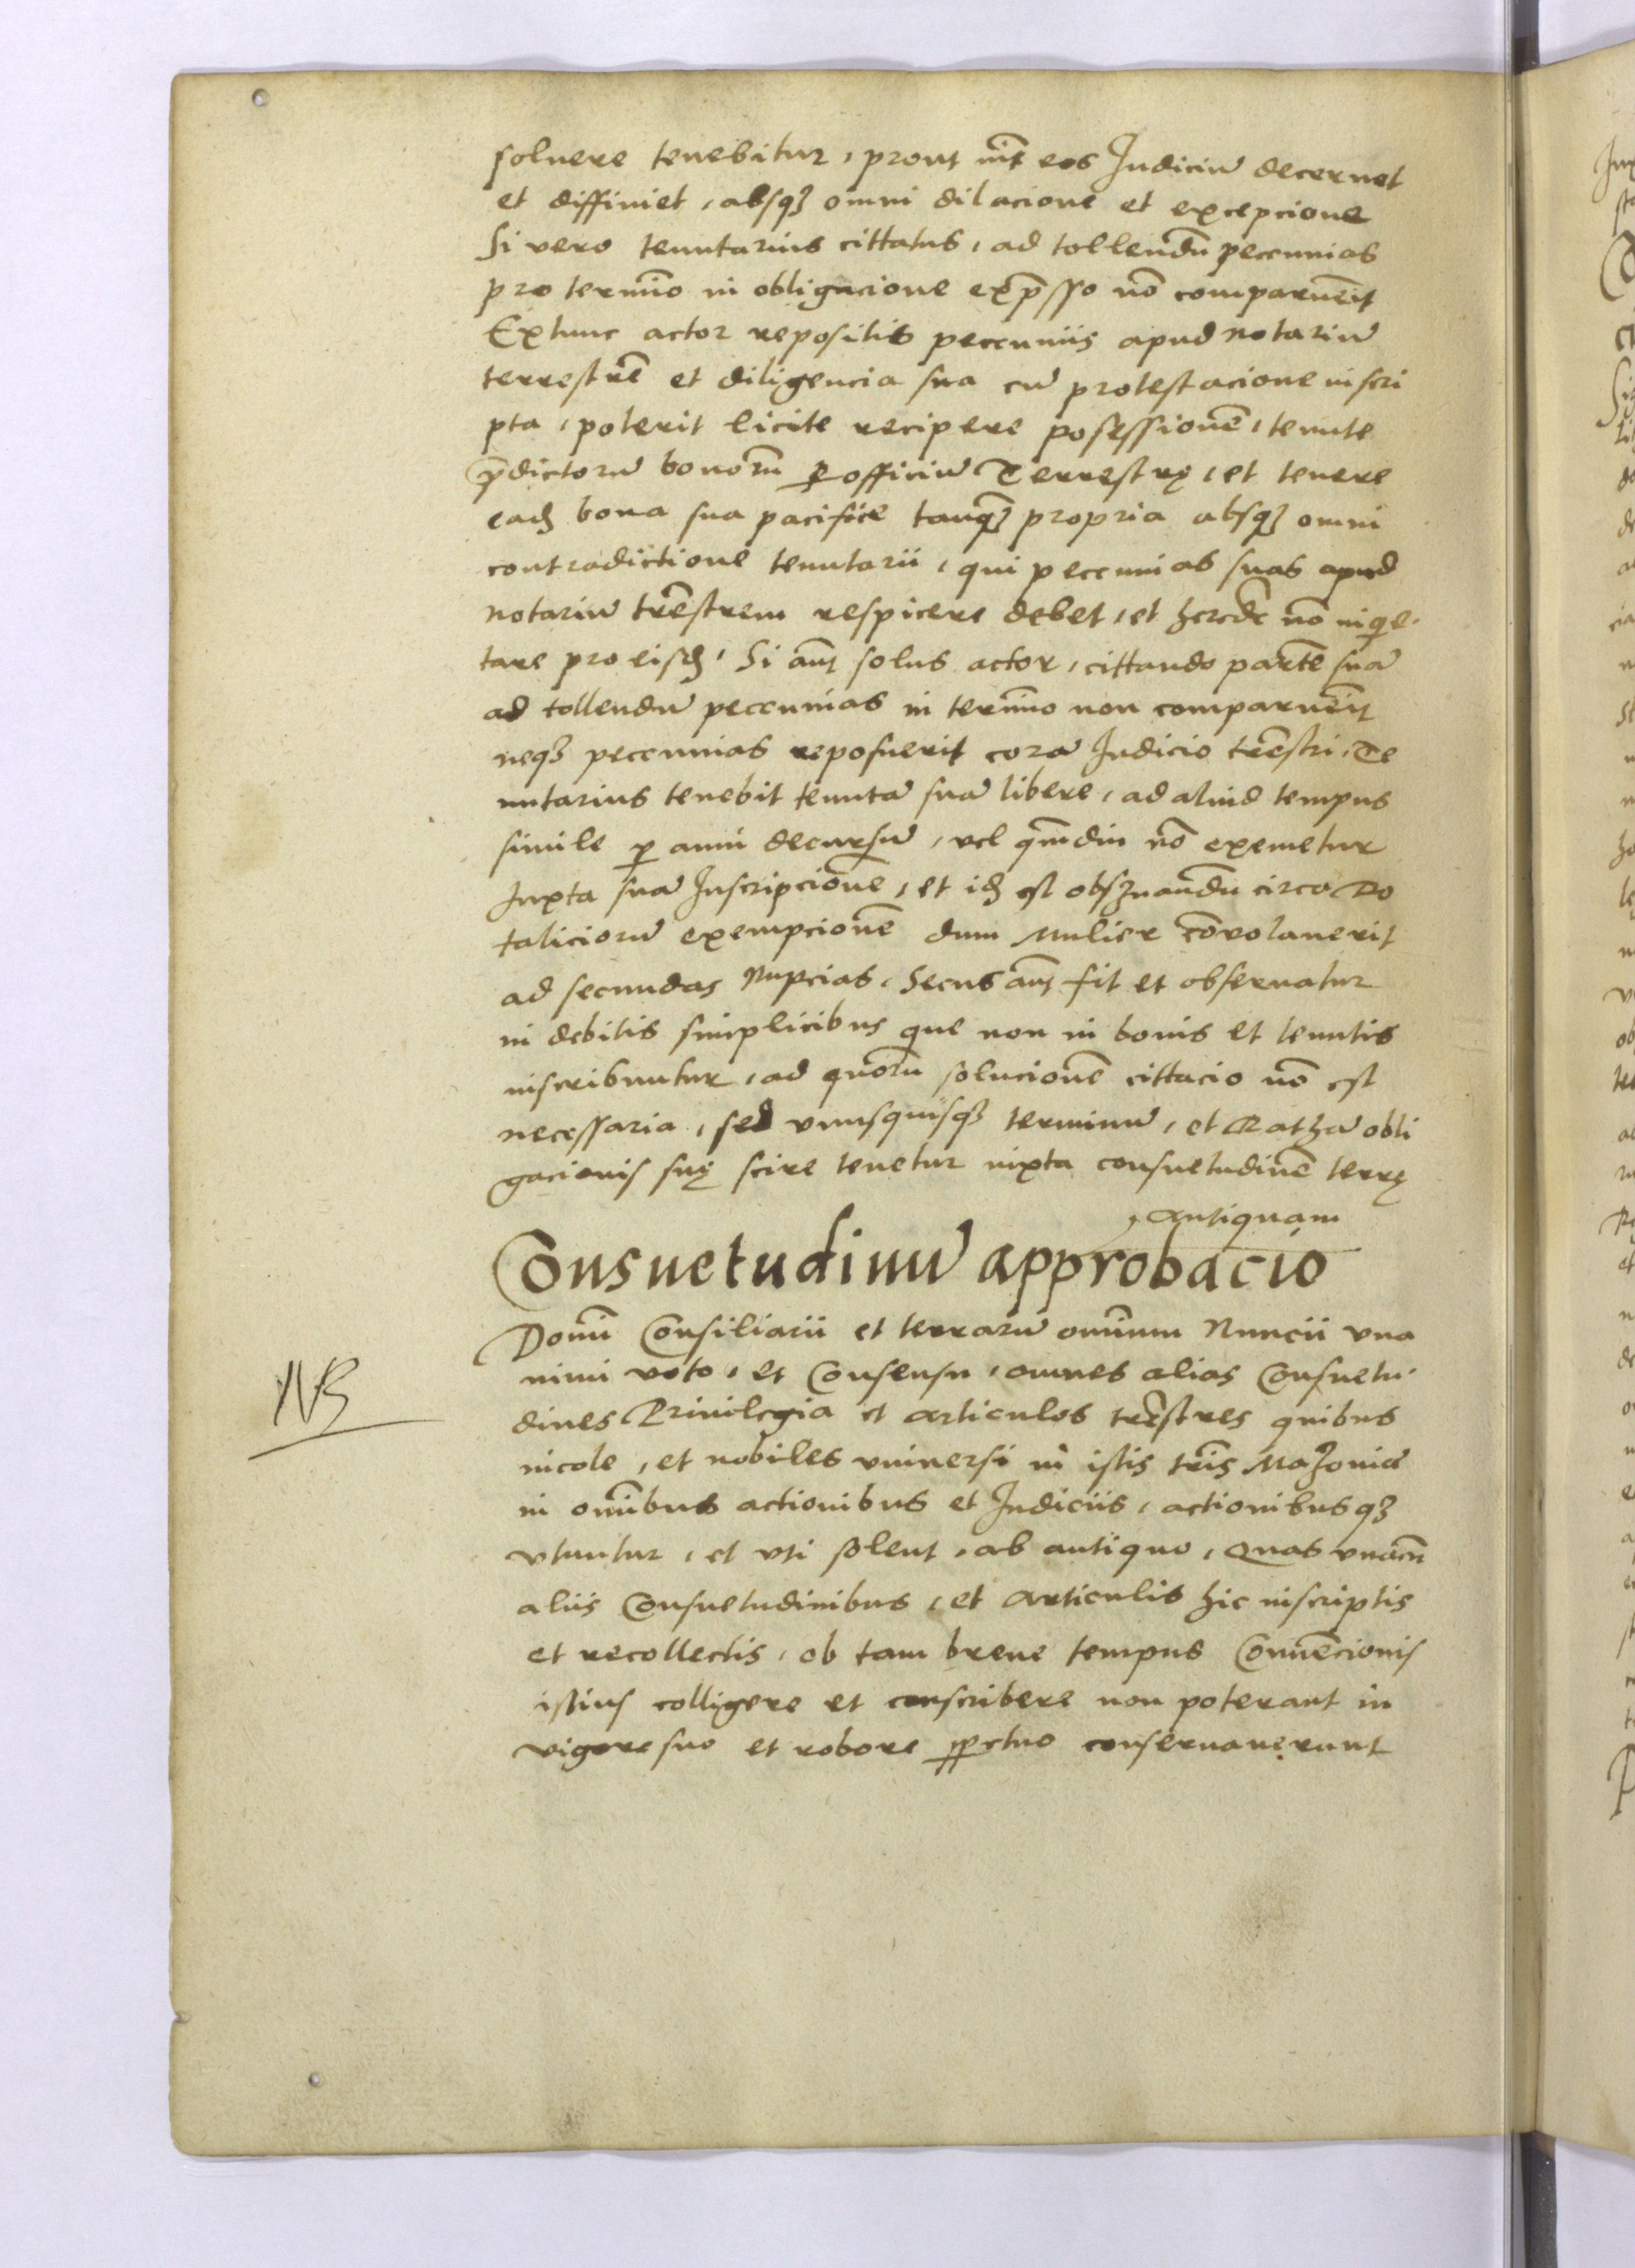 soluere tenebitur, prout int̃ eos Iudiciũ decernet
et diffiniet, absqꝫ omni dilacione et excepcione
Si vero tenutarius cittatus, ad tollendũ peccunias
pro termĩo in obligacione exp̃sso nõ comparuẽit
Extunc actor repositis peccuniis apud notariũ
terrestrẽ et diligencia sua cũ protestacione inscri
pta, poterit licite recipere posessionẽ, tenute
p̃dictorũ bonorũ ꝑ officiũ Terrestrę, et tenere
eadꝫ bona sua pacifice tanqꝫ propria absqꝫ omni
contradictione tenutarii, qui peccunias suas apud
notariũ tr̃estrem respicere debet, et hered̃e nõ inqͥe-
tare pro eisdꝫ, Si aut̃ solus actor, cittando partẽ suã
ad tollendũ peccunias in termĩo non comparuẽit
neqꝫ peccunias reposuerit corã Iudicio tr̃estri, Te
nutarius tenebit tenutã suã libere, ad aliud tempus
simile ꝑ anni decursũ, vel qm̃diu nõ exemetur
Iuxta suã Inscripcionẽ, et idꝫ est obsꝫuandũ circa Do
taliciorũ exempcionẽ dum Mulier cõuolauerit
ad secundas Nupcias, Secus aut̃ fit et obseruatur
in debitis simplicibus que non in bonis et tenutis
inscribuntur, ad quorũ solucionẽ cittacio nõ est
necessaria, sed vnusquisqꝫ terminũ, et Rathã obli
gacionis suę scire tenetur iuxta consuetudinẽ terrę
, antiquam
Consuetudinũ approbacio
Domĩ Consiliarii et terrarũ omĩum Nuncii vna
nimi voto, et Consensu, omnes alias Consuetu-
dines Priuilegia et articulos tr̃estres quibus
incole, et nobiles vniuersi in istis tr̃is Mazouiæ
in omĩbus actionibus et Iudiciis, actionibusqꝫ
vtuntur, et vti solent, ab antiquo, Quas vnacũ
aliis Consuetudinibus, et articulis hic inscriptis
et recollectis, ob tam breue tempus Conuẽcionis
istius colligere et conscribere non poterant in
vigore suo et robore ꝑpetuo conseruauerunt
NB